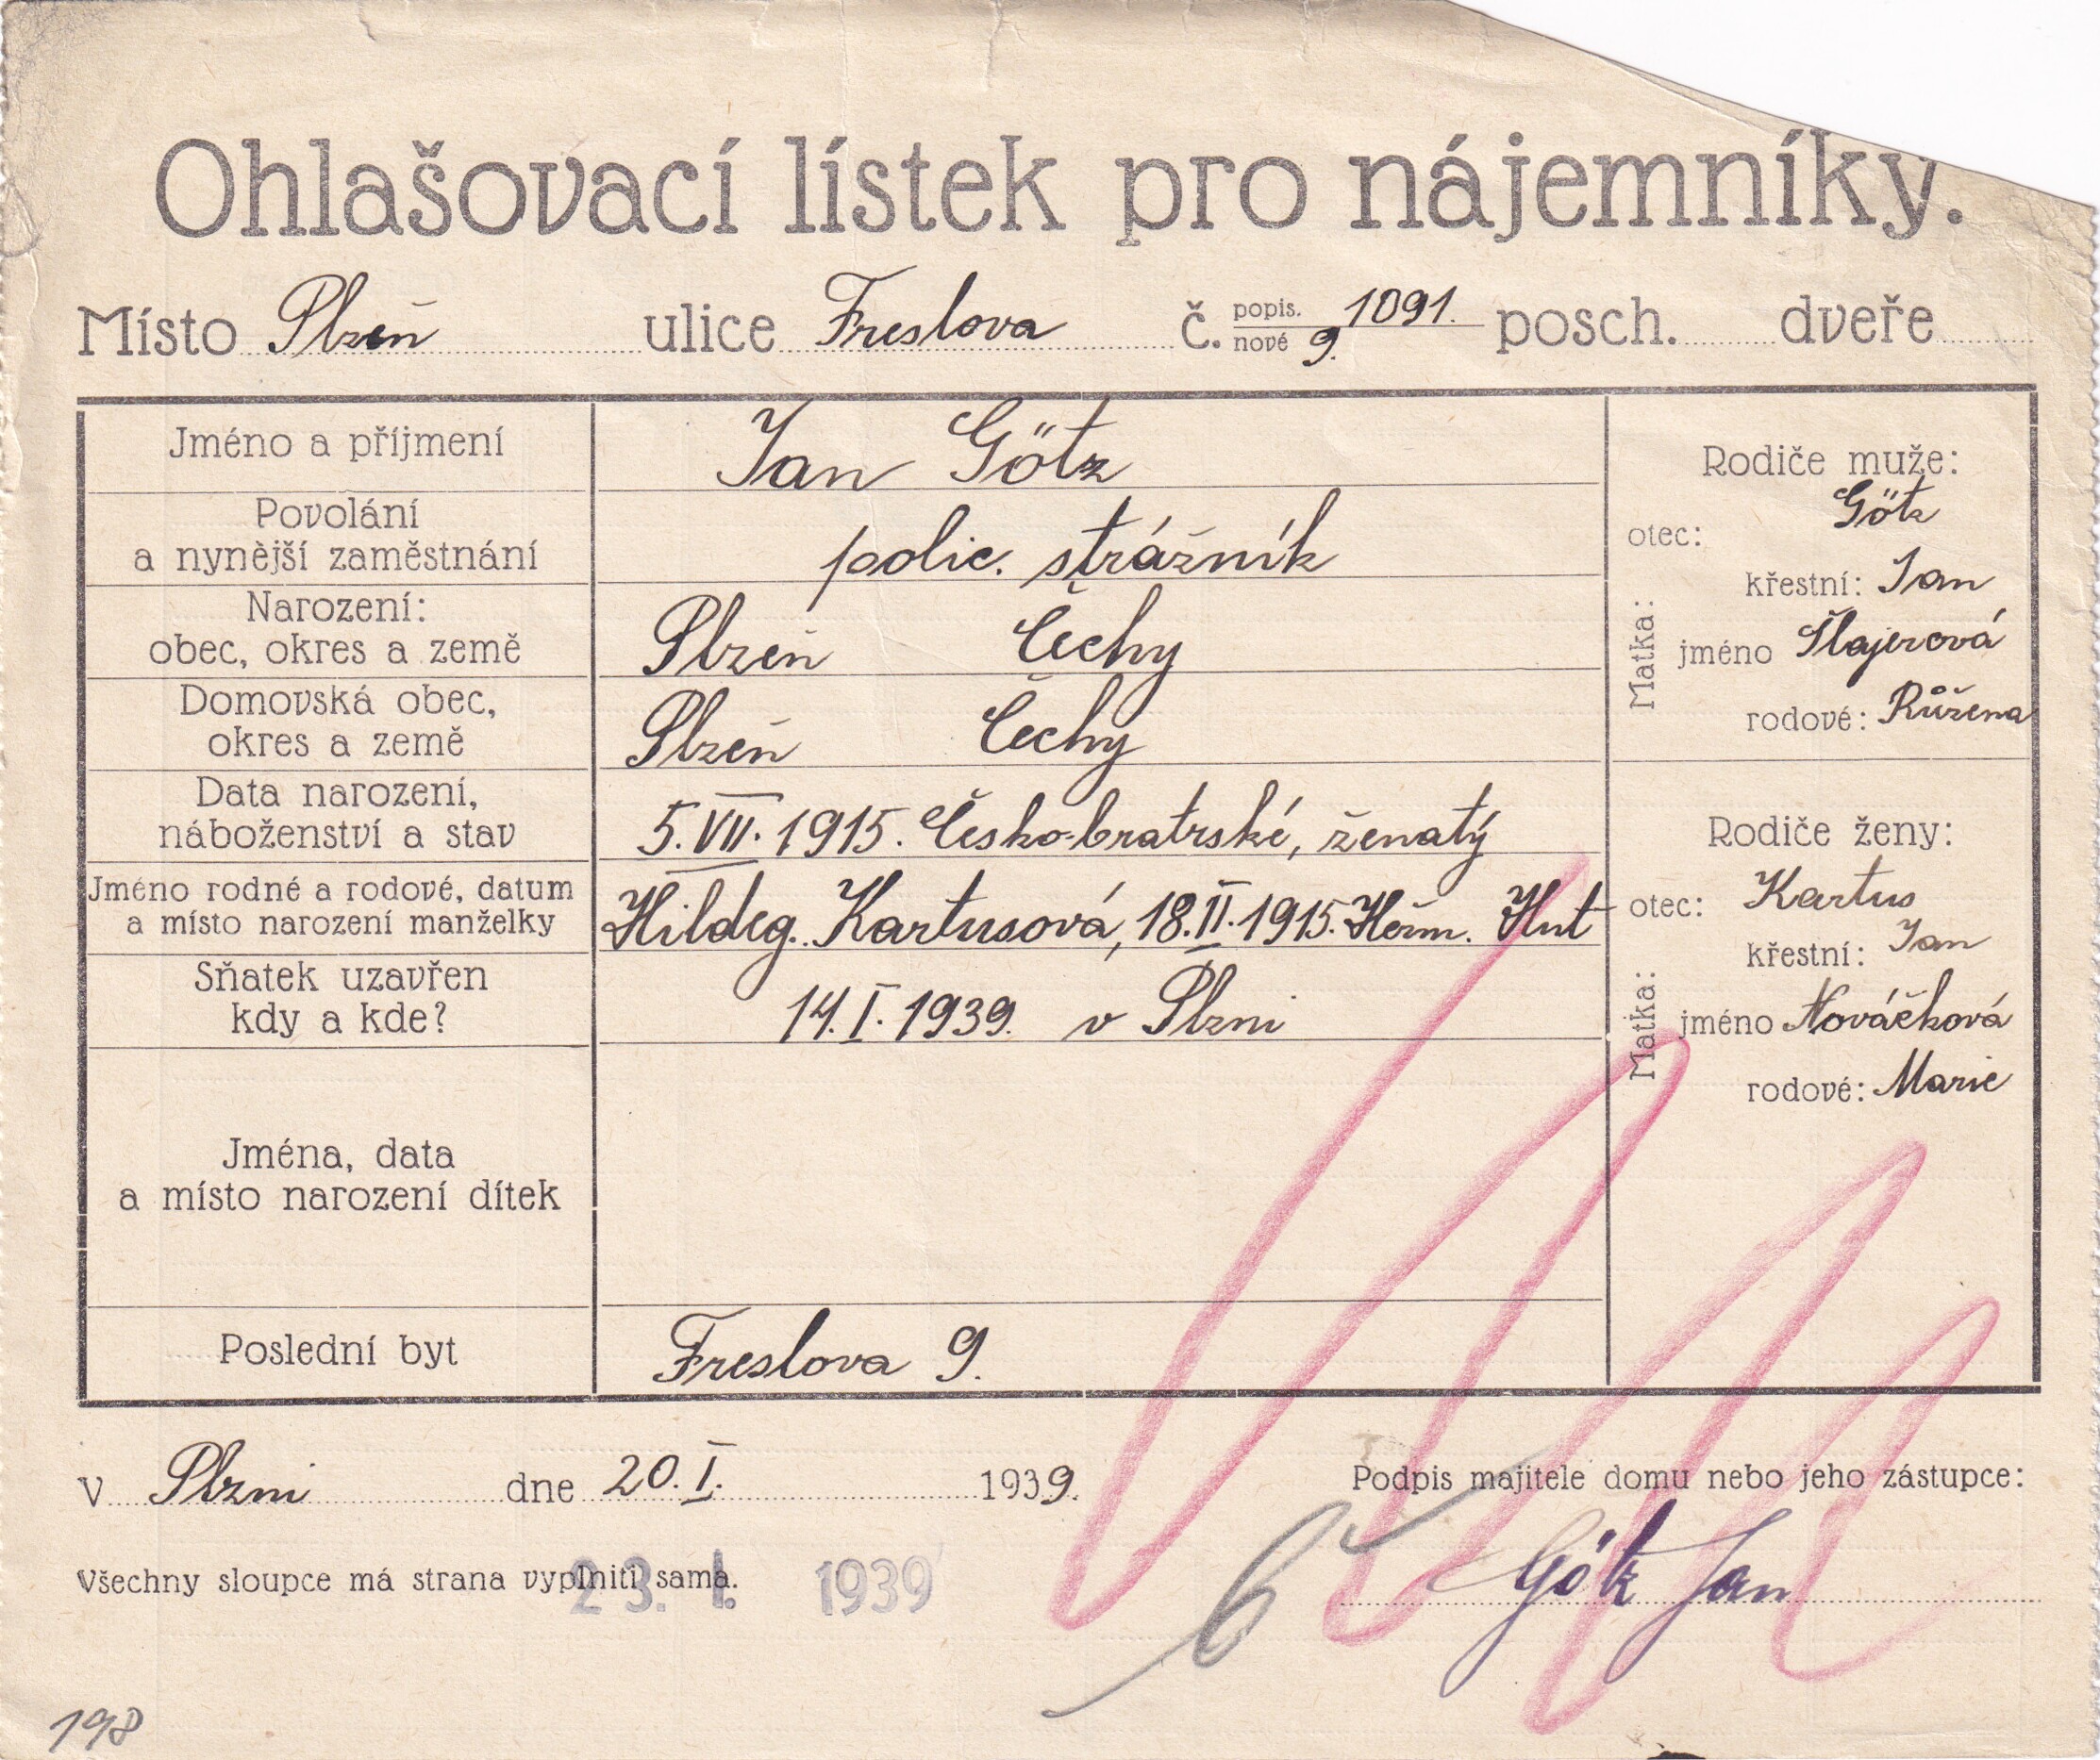 Ohlašovací lístek pro nájemníky.
Místo Plzeň ulice Freslova č. popis. 1091. nové 9. posch. dveře
Jméno a příjmení Jan Götz
Povolání
a nynější zaměstnání polic. strážník
Narození:
obec, okres a země Plzeň Čechy
Domovská obec,
okres a země Plzeň Čechy
Data narození,
náboženství a stav 5. VII. 1915. Česko-bratrské, ženatý
Jméno rodné a rodové, datum
a místo narození manželky Hildeg. Kartusová, 18. II. 1915. Heřm. Huť
Sňatek uzavřen
kdy a kde? 14. I. 1939. v Plzni
Jména, data
a místo narození dítek
Poslední byt Freslova 9.
Rodiče muže:
otec: Götz
křestní: Jan
Matka: jméno Šlajerová
rodové: Růžena
Rodiče ženy:
otec: Kartus
křestní: Jan
Matka: jméno Nováčková
rodové: Marie
V Plzni dne 20. I. 1939.
Podpis majitele domu nebo jeho zástupce:
Götz Jan
Všechny sloupce má strana vyplniti sama.
23. I. 1939
198